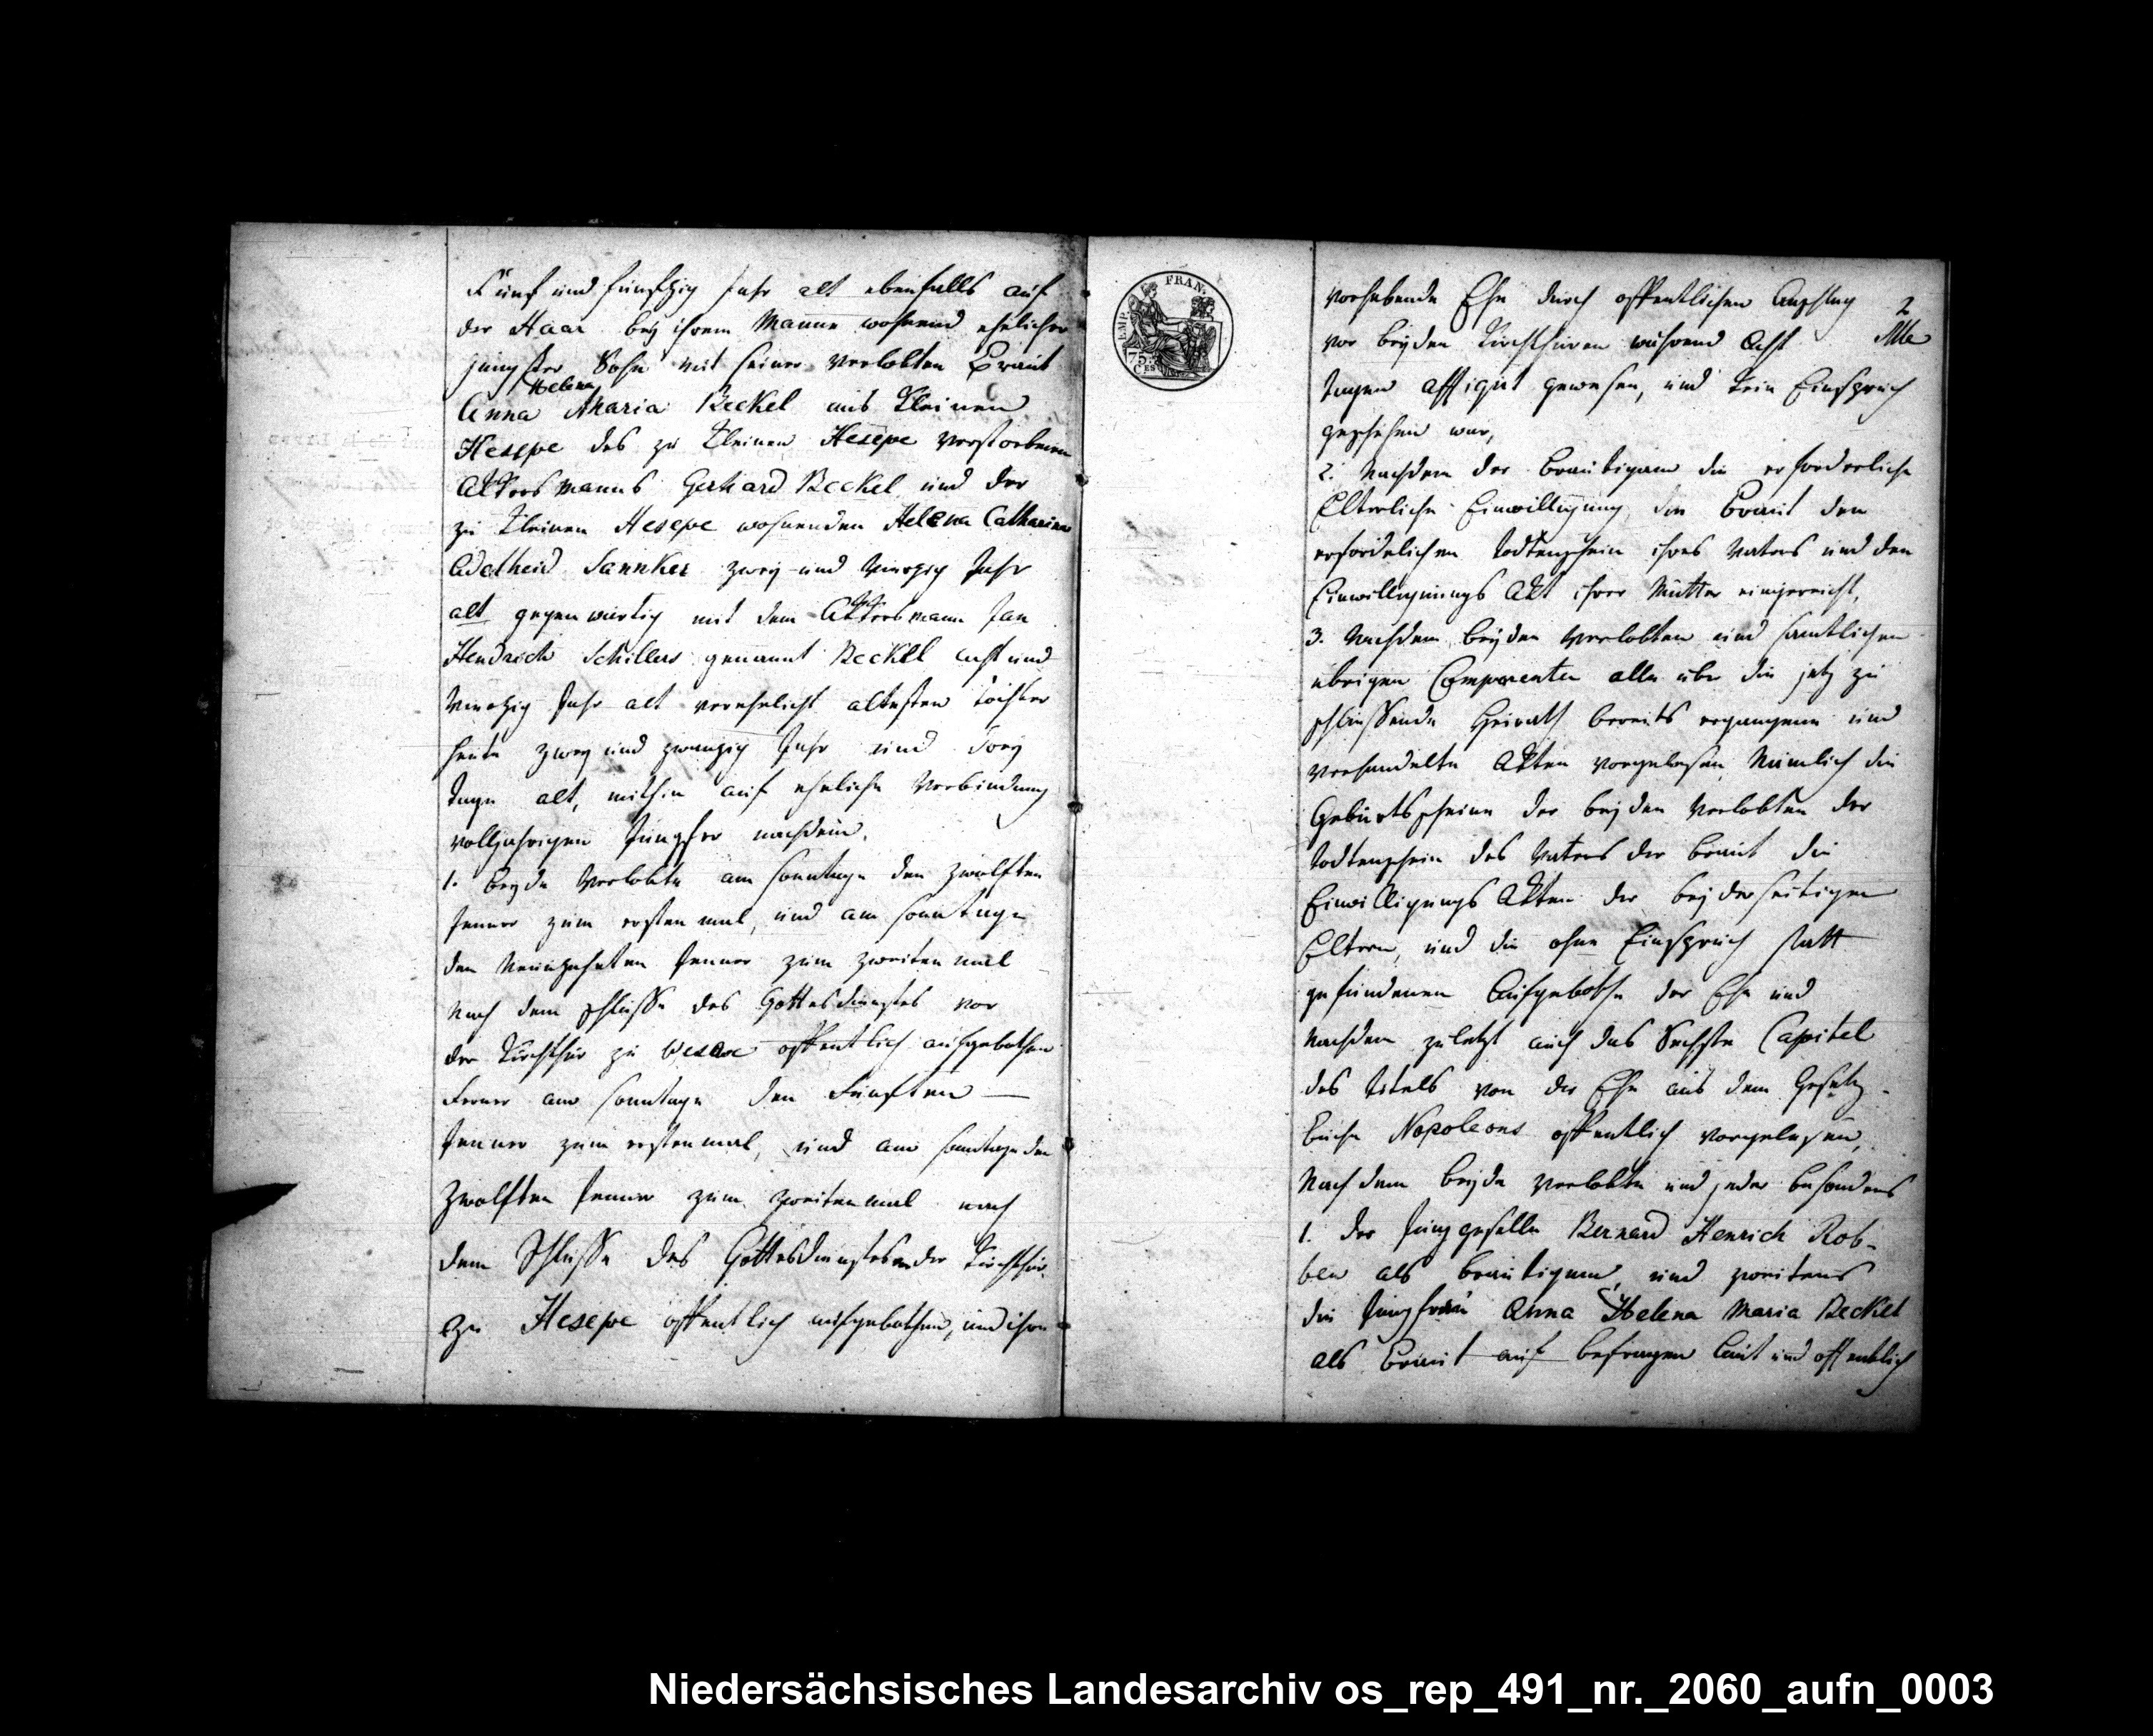 Fünf und fünfzig Jahr alt ebenfalls auf
der Haar bey ihrem Manne wohnend ehelicher
jüngster Sohn mit seiner verlobten Braut
Helena
Anna Maria Beckel aus Kleinen
Hesepe des zu Kleinen Hesepe verstorbenen
Akkersmanns Gerhard Beckel und der
zu Kleinen Hesepe wohnenden Helena Catharina
Adelheid Sannker zwey und vierzig Jahr
alt gegenwärtig mit dem Akkersmann Jan
Hendrich Schillers genannt Beckel acht und
vierzig Jahr alt verehelicht altesten Tochter
heute zwey und zwanzig Jahr und drey
Tage alt, mithin auf eheliche Verbindung
volljahrigen Jungfer nachdem.
1. beyde Verlobte am Sonntage den zwolften
Jenner zum ersten mal, und am Sonntage
den Neunzehnten Jenner zum zweiten mal
nach dem Schlusse des Gottesdienstes vor
der Kirchthür zu Wesuwe offentlich aufgebothen
ferner am Sonntage den Fünften —
Jenner zum ersten mal, und am Sonntage den
zwolften Jenner zum zweiten mal nach
dem Schlusse des Gottesdienstes an der Kirchthür
zu Hesepe öffentlich aufgebothen, und ihre
EMP. FRAN.
75. CES
2
vorhabende Ehe durch offentlichen Anschlag
vor beyden Kirchthüren während Acht
Tagen affigirt gewesen, und kein Einspruch
geschehen war,
2. Nachdem der Bräutigam die erforderliche
Elterliche Einwilligung die Braut den
erforderlichen Todtenschein ihres Vaters und den
Einwilligungs Akt ihrer Mutter eingereicht,
3. Nachdem beyden Verlobten und samtlichen
ubrigen Comparenten alle uber die jetz zu
schliessende Heirath bereits ergangene und
verhandelte Akten vorgelesen Nämlich die
Geburtsscheine der beyden Verlobten der
Todtenschein des Vaters der Braut die
Einwilligungs Akten der beyderseitigen
Eltern, und die ohne Einspruch statt
gefundenen Aufgebothe der Ehe und
Nachdem zuletzt auch das Sechste Capitel
des Titels von der Ehe aus dem Gesetz-
buche Napoleons offentlich vorgelesen,
Nachdem beyde verlobte und jeder besonders
1. der Junggeselle Bernard Henrich Rob-
ben als Bräutigam, und zweitens
die Jungfrau Anna Helena Maria Beckel
als Braut auf befragen laut und offentlich
Niedersächsisches Landesarchiv os_rep_491_nr._2060_aufn_0003